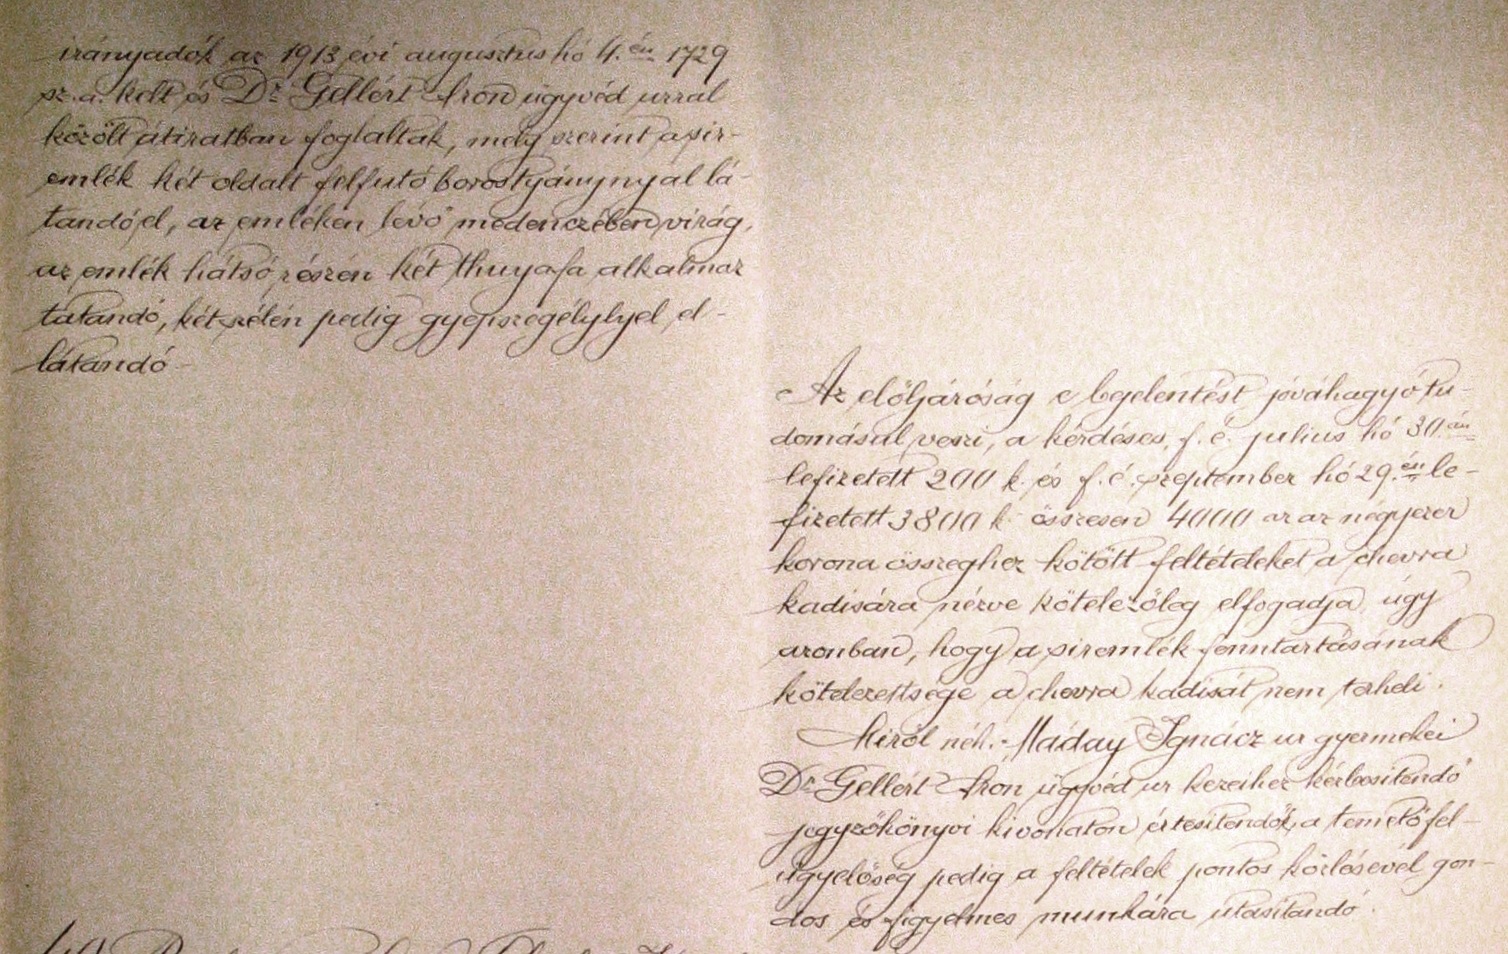 irányadók az 1913 évi augusztus hó 4.én 1729
sz. a. kelt és Dr Gellért Áron ügyvéd urral
közölt átiratban foglaltak, mely szerint a sir-
emlék két oldalt felfutó borostyánynyal lá-
tandó el, az emléken levő medenczében virág,
az emlék hátsó részén két thuyafa alkalmaz
tatandó, két szélén pedig gyepszegélylyel el-
látandó -
Az előljáróság e bejelentést jóváhagyó tu-
domásul veszi, a kérdéses, f. é. julius hó 30.án
lefizetett 200 k. és f. é. szeptember hó 29.én le-
fizetett 3800 k. összesen 4000 az az négyezer
korona összeghez kötött feltételeket a chevra
kadisára nézve kötelezőleg elfogadja, úgy
azonban, hogy a siremlék fenntartásának
kötelezettsége a chevra kadisát nem terheli.
Miről néh. Máday Ignácz ur gyermekei
Dr Gellért Áron ügyvéd ur kezeihez kézbesitendő
jegyzőkönyvi kivonaton értesitendők, a temetőfel-
ügyelőség pedig a feltételek pontos közlésével gon-
dos és figyelmes munkára utasitandó.